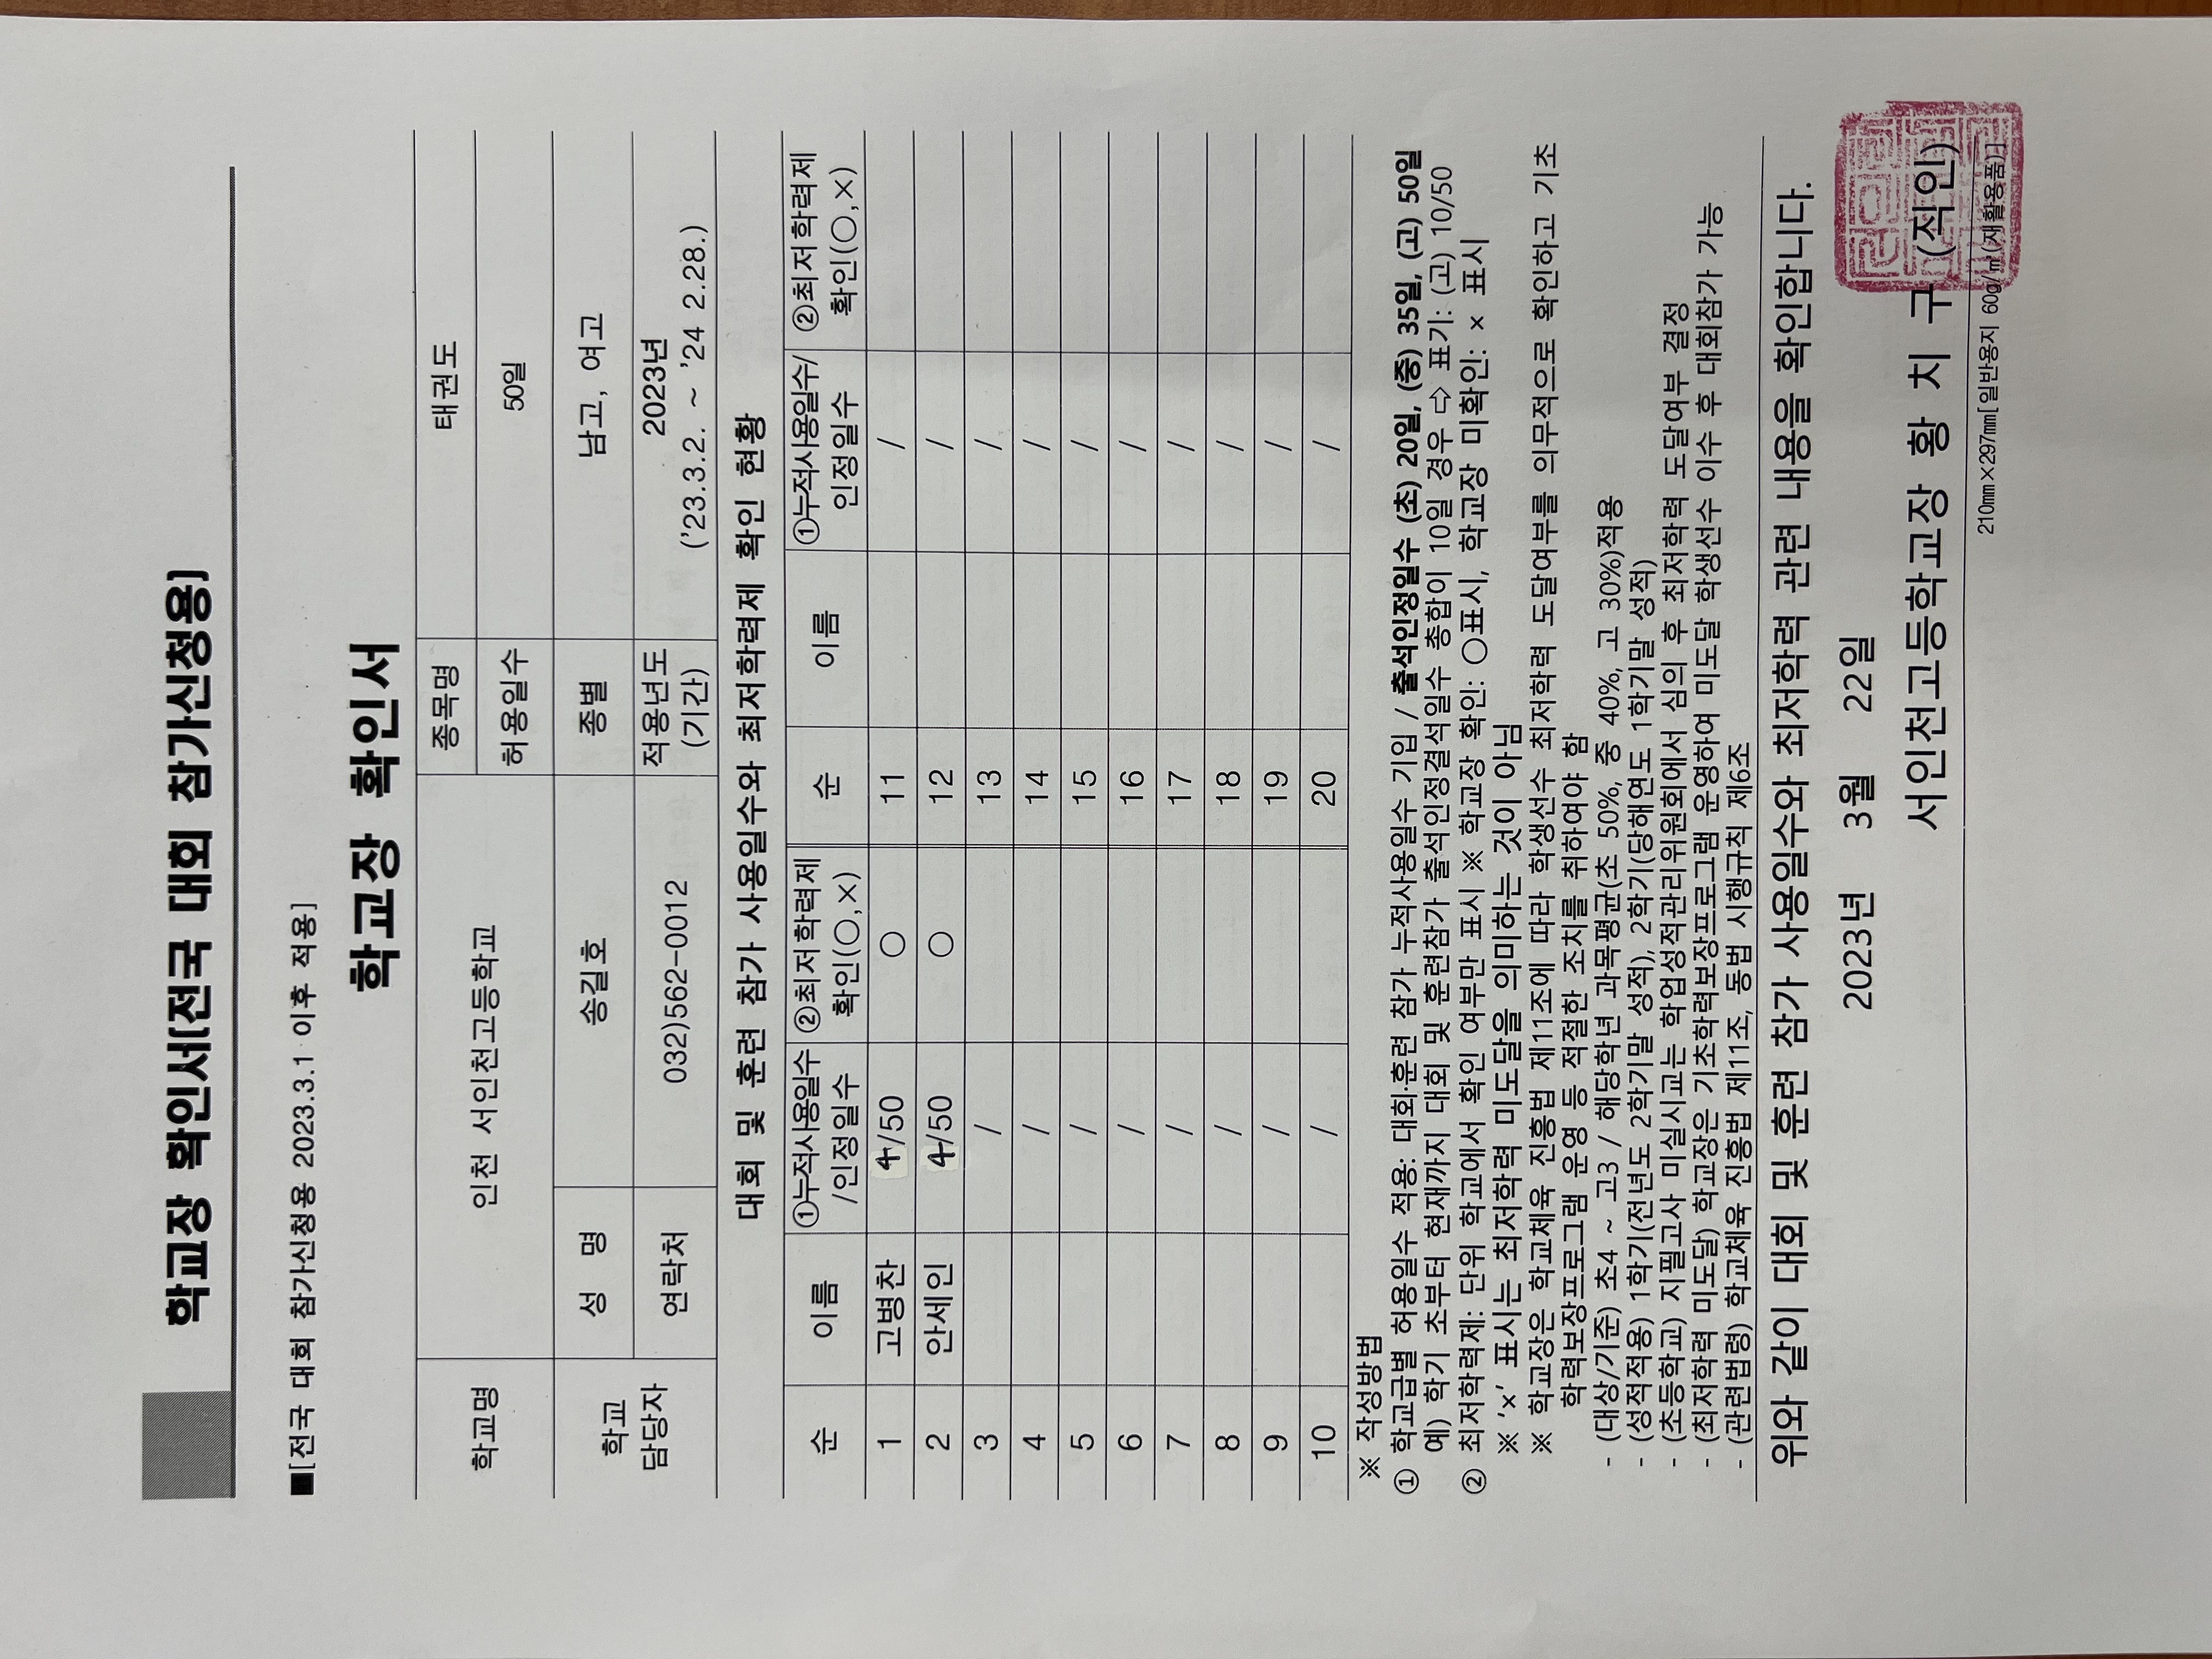 학교장 확인서[전국 대회 참가신청용]
■[전국 대회 참가신청용 2023.3.1 이후 적용]
학교장 확인서
학교명 인천 서인천고등학교 종목명 태권도
허용일수 50일
학교 담당자 성 명 송길호 종별 남고, 여고
연락처 032)562-0012 적용년도 (기간) 2023년 ('23.3.2. ~ '24 2.28.)
대회 및 훈련 참가 사용일수와 최저학력제 확인 현황
순 이름 ①누적사용일수 /인정일수 ②최저학력제 확인(○,×) 순 이름 ①누적사용일수/ 인정일수 ②최저학력제 확인(○,×)
1 고병찬 4/50 ○ 11 /
2 안세인 4/50 ○ 12 /
3 / 13 /
4 / 14 /
5 / 15 /
6 / 16 /
7 / 17 /
8 / 18 /
9 / 19 /
10 / 20 /
※ 작성방법
① 학교급별 허용일수 적용: 대회·훈련 참가 누적사용일수 기입 / 출석인정일수 (초) 20일, (중) 35일, (고) 50일
예) 학기 초부터 현재까지 대회 및 훈련참가 출석인정결석일수 총합이 10일 경우 ⇨ 표기: (고) 10/50
② 최저학력제: 단위 학교에서 확인 여부만 표시 ※ 학교장 확인: ○표시, 학교장 미확인: × 표시
※ '×' 표시는 최저학력 미도달을 의미하는 것이 아님
※ 학교장은 학교체육 진흥법 제11조에 따라 학생선수 최저학력 도달여부를 의무적으로 확인하고 기초
학력보장프로그램 운영 등 적절한 조치를 취하여야 함
- (대상/기준) 초4 ~ 고3 / 해당학년 과목평균(초 50%, 중 40%, 고 30%)적용
- (성적적용) 1학기(전년도 2학기말 성적), 2학기(당해연도 1학기말 성적)
- (초등학교) 지필고사 미실시교는 학업성적관리위원회에서 심의 후 최저학력 도달여부 결정
- (최저학력 미도달) 학교장은 기초학력보장프로그램 운영하여 미도달 학생선수 이수 후 대회참가 가능
- (관련법령) 학교체육 진흥법 제11조, 동법 시행규칙 제6조
위와 같이 대회 및 훈련 참가 사용일수와 최저학력 관련 내용을 확인합니다.
2023년 3월 22일
서인천고등학교장 황 치 구 (직인)
210㎜×297㎜[일반용지 60g/㎡(재활용품)]